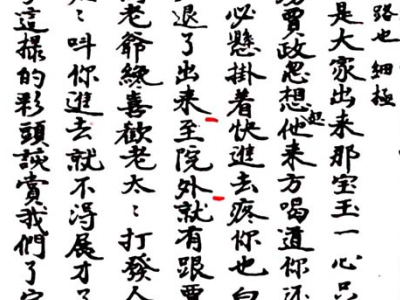 路也 細極
是大家出来那宝玉一心只
賈政忽想起他来方喝道你还
必懸掛着快進去疼你也白
退了出来至院外就有跟賈
老爺纔喜歡老太：打發人
：叫你進去就不得展才了
這樣的彩頭該賞我們了